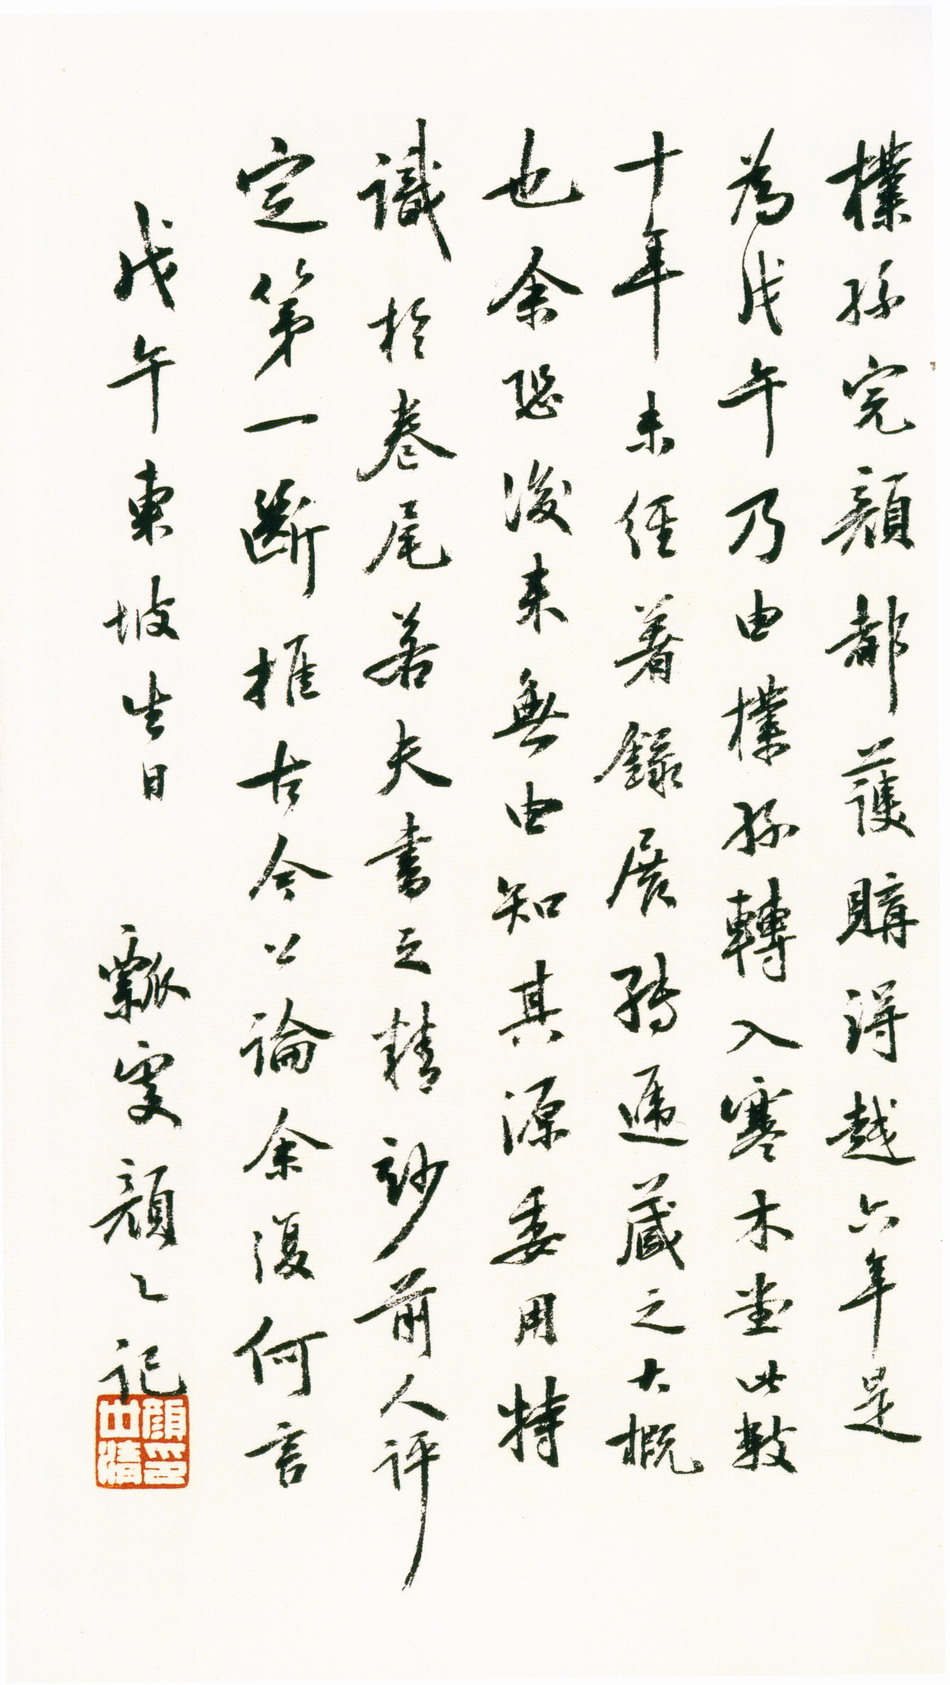 樸孫完顏都護購得越六年是
為戊午乃由樸孫轉入寒木堂此數
十年未經著錄展轉遞藏之大概
也余恐後來無由知其源委用特
識於卷尾若夫書之精妙前人評
定第一斷推古今公論余復何言
戊午東坡生日 瓢叟顏乙記
顏印世清